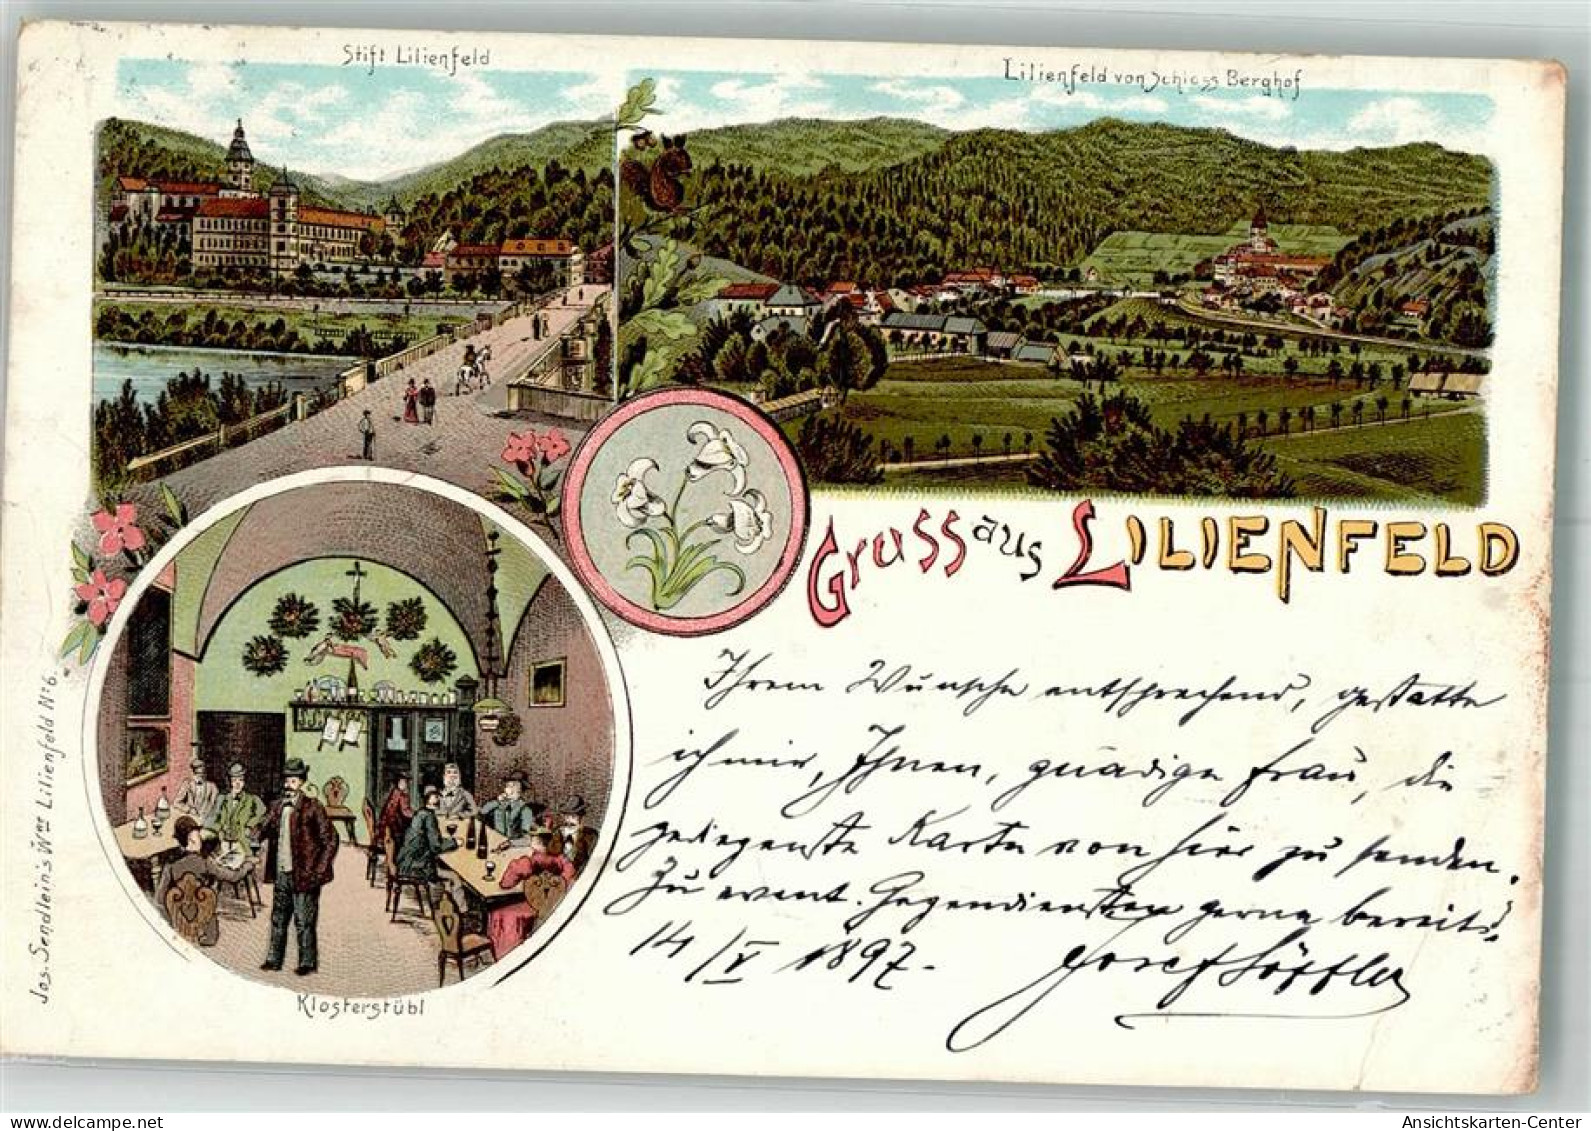 Stift Lilienfeld
Lilienfeld von Schloss Berghof
Gruss aus LILIENFELD
Ihrem Wunsche entsprechend, gestatte
ich mir, Ihnen, gnädige Frau, die
gediegenste Karte von hier zu senden.
Zu event. Gegendiensten gerne bereit,
14/V 1897.
Josef Löffler
Klosterstübl
Jos. Sendlein's Wwe Lilienfeld No 6.
delcampe.net
Ansichtskarten-Center